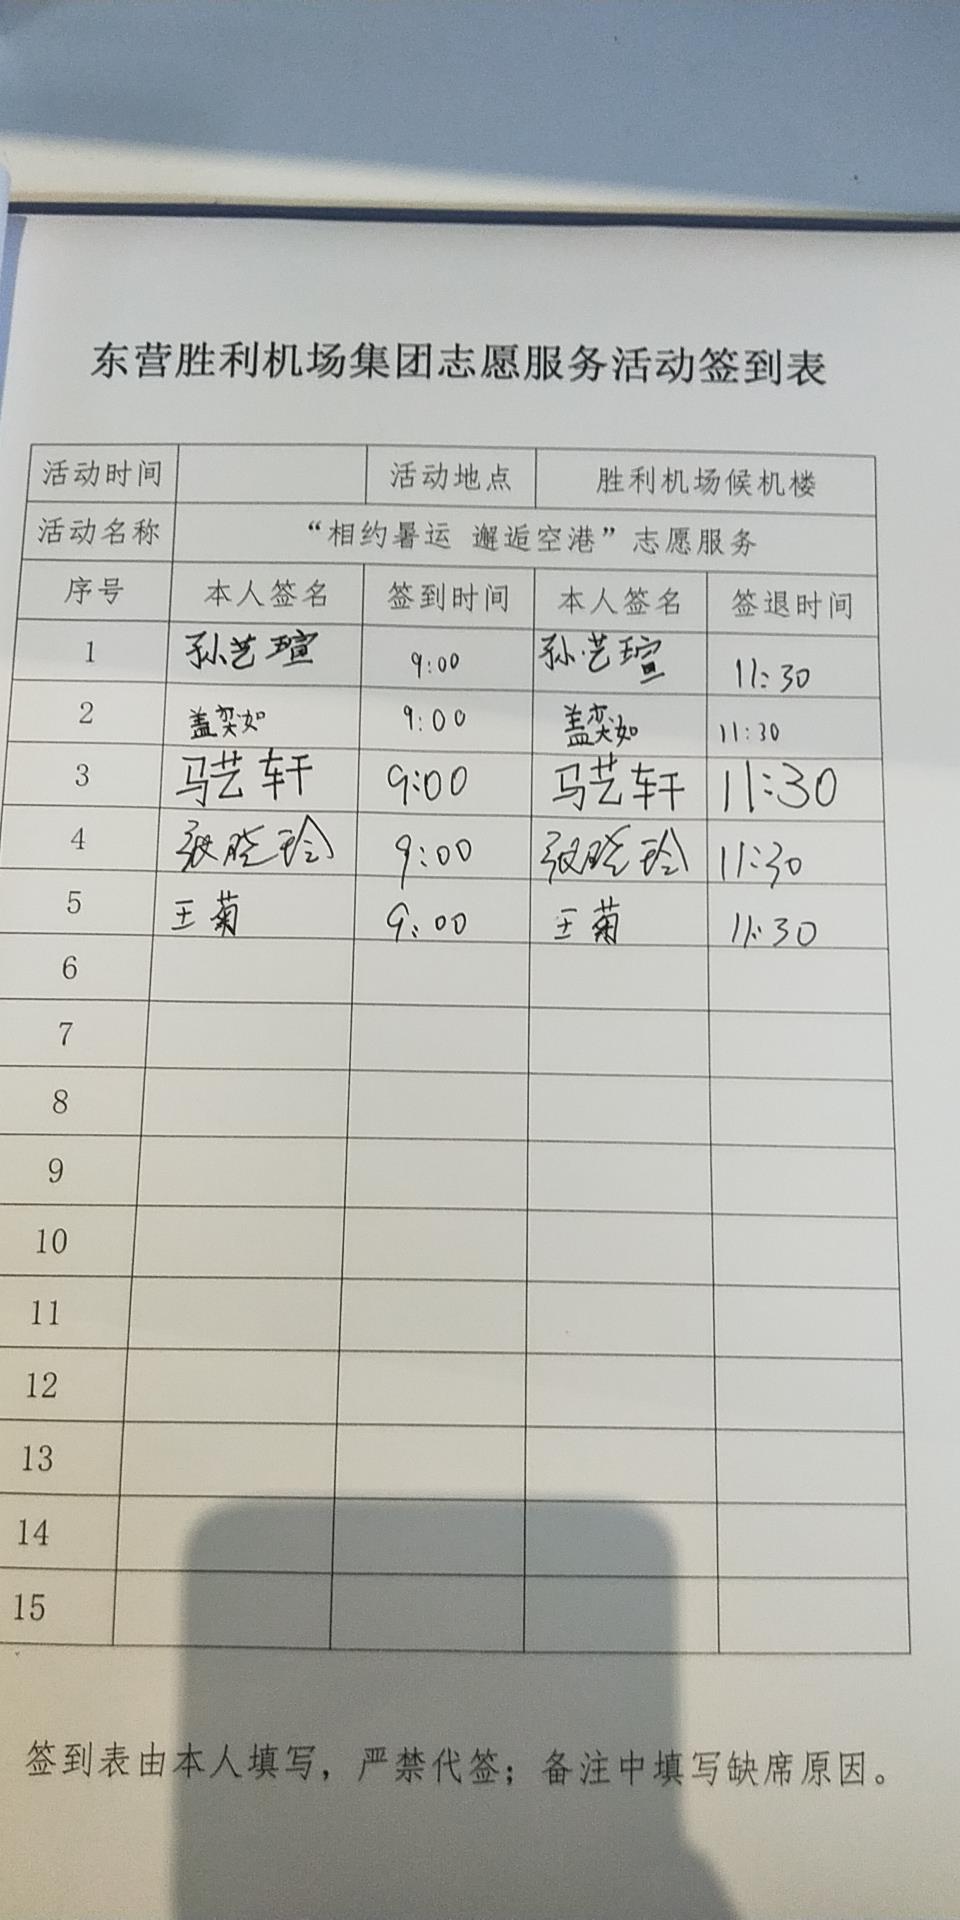 东营胜利机场集团志愿服务活动签到表
活动时间 活动地点 胜利机场候机楼
活动名称 “相约暑运 邂逅空港”志愿服务
序号 本人签名 签到时间 本人签名 签退时间
1 孙艺瑄 9:00 孙艺瑄 11:30
2 盖奕如 9:00 盖奕如 11:30
3 马艺轩 9:00 马艺轩 11:30
4 张晓玲 9:00 张晓玲 11:30
5 王菊 9:00 王菊 11:30
6
7
8
9
10
11
12
13
14
15
签到表由本人填写，严禁代签；备注中填写缺席原因。